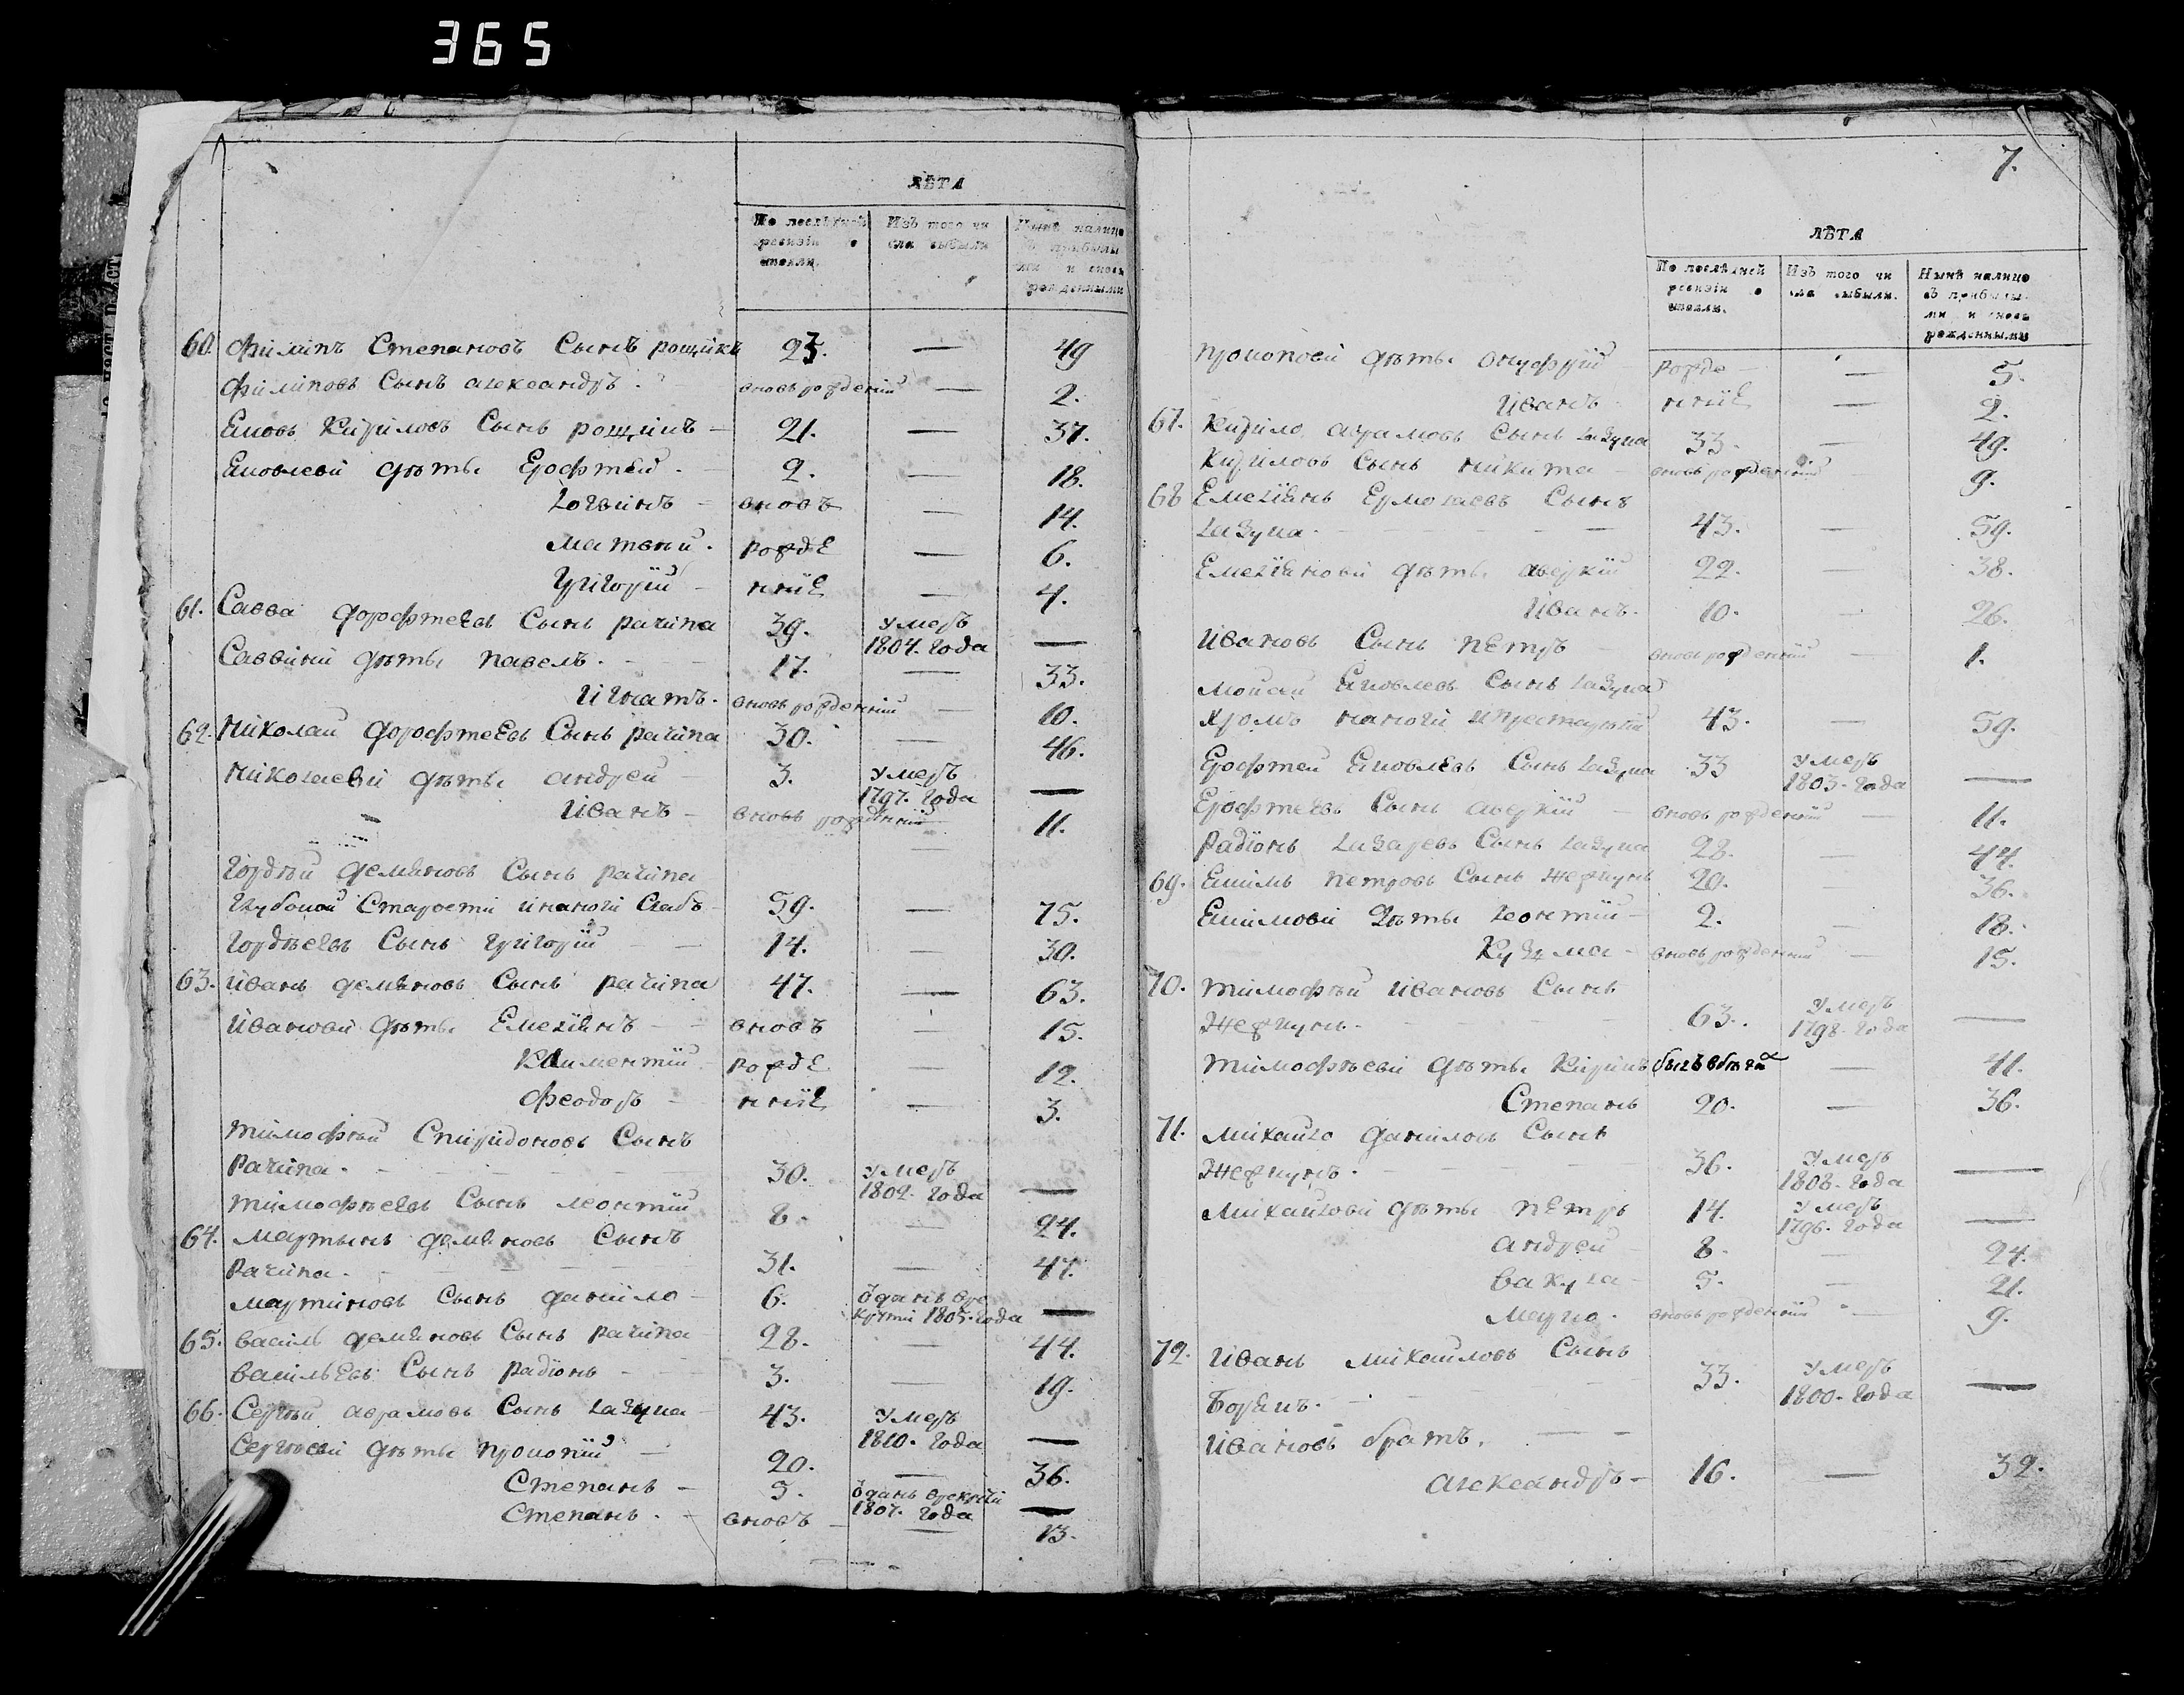 365
ЛѢТА
По послѣдней Изъ того чи Нынѣ налицо
ревизіи со сла выбыли съ прибылы
стояли. ми и вновь
рожденными
60. Филипъ Степановъ Сынъ рощикъ 23. — 49
Филиповъ Сынъ александръ. вновь рожденій — 2.
Яковъ Кириловъ Сынъ рощинъ — 21. — 37.
Яковлеви дѣти Ерофтей. 2. — 18.
Логвинъ — вновъ — 14.
Матвѣй. рожде — 6.
Григорій — нніе — 4.
61. Савва дорофтеевъ Сынъ рачипа 39. умеръ 1804. года —
Саввини дѣти павелъ. — 17. — 33.
Игнатъ. вновь рожденій — 10.
62. Николай дорофтеевъ Сынъ рачипа 30. — 46.
Николаеви дѣти андрей 3. умеръ 1797. года —
Иванъ — вновь рожденій 11.
Гордѣй демяновъ Сынъ рачипа
глубокой Старости инаноги Слабъ — 59. — 75.
Гордѣевъ Сынъ григорій — 14. — 30.
63. Иванъ демяновъ Сынъ рачипа 47. — 63.
Иванови дѣти Емелянъ — вновъ — 15.
Климентій рожде — 12.
Феодоръ — нніе — 3.
Тимофѣй Спиридоновъ Сынъ
рачипа. — 30. умеръ 1802. года —
Тимофѣевъ Сынъ леонтій 8. — 24.
64. Мартынъ демяновъ Сынъ
рачипа. — 31. — 47.
Мартиновъ Сынъ данило — 6. Ѿданъ врекруты 1805. года —
65. василь демяновъ Сынъ рачипа 28. — 44.
васильевъ Сынъ радіонъ — 3. — 19.
66. Сергѣй аврамовъ Сынъ лазука 43. умеръ 1810. года —
Сергѣеви дѣти прокопій — 20. — 36.
Степанъ — 5. Ѿданъ врекруты 1807. года —
Степанъ. — вновъ — 13.
7.
ЛѢТА
По послѣдней Изъ того чи Нынѣ налицо
ревизіи со сла выбыли. съ прибылы
стояли. ми и вновь
рожденными
прокопови дѣти онуфрій рожде — 5.
Иванъ нніе — 2.
67. Кирило аврамовъ Сынъ лазука 33. — 49.
Кириловъ Сынъ никита — вновь рожденій 9.
68 Емелянъ Ермолаевъ Сынъ
лазука. — 43. — 59.
Емелянови дѣти аверкій 22. — 38.
Иванъ. 10. — 26.
Ивановъ Сынъ петръ — вновь рожденій — 1.
Яковлевъ Сынъ лазука
хромъ наноги ипрестарѣлій 43. — 59.
Ерофтей Яковлевъ Сынъ лазука 33 умеръ 1803. года —
Ерофтеевъ Сынъ аверкій — вновь рожденій — 11.
Радіонъ лазаревъ Сынъ лазука 28. — 44.
69. Екимъ петровъ Сынъ 20. — 36.
Екимови дѣти леонтій — 2. — 18.
Кузма — вновь рожденій — 15.
70. Тимофѣй Ивановъ Сынъ
63. умеръ 1798. года —
Тимофѣеви дѣти былъ вбѣгахъ — 41.
Степанъ 20. — 36.
71. Михайло даниловъ Сынъ
36. умеръ 1808. года —
Михайлови дѣти петръ 14. умеръ 1796. года —
андрей — 8. — 24.
вакула — 5. — 21.
Марко. вновь рожденій — 9.
72. Иванъ Михайловъ Сынъ
33. умеръ 1800. года —
Ивановъ братъ. —
александръ — 16. — 32.